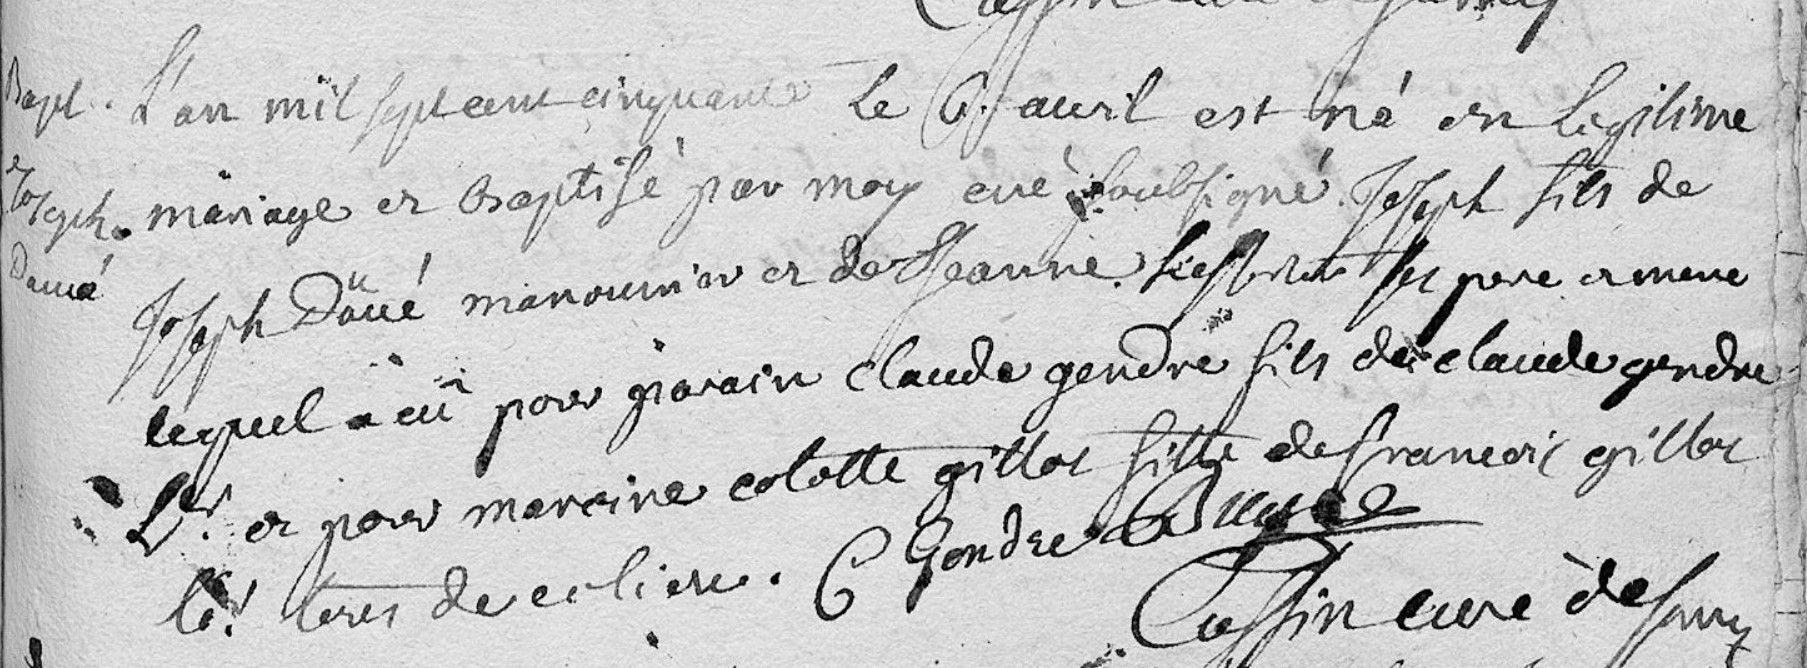 Bapt. L'an mil sept cent cinquante le 6. auril est né en legitime
Joseph mariage et Baptisé par moy curé soubsigné Joseph fils de
Daüé Joseph Daüé manouurier et de Jeanne ses pere et mere
lequel a eü pour parain claude gendre fils de claude gendre
Lr. et pour mareine colotte gillot fille de francois gillot
de
C Gendre
Cassin curé de